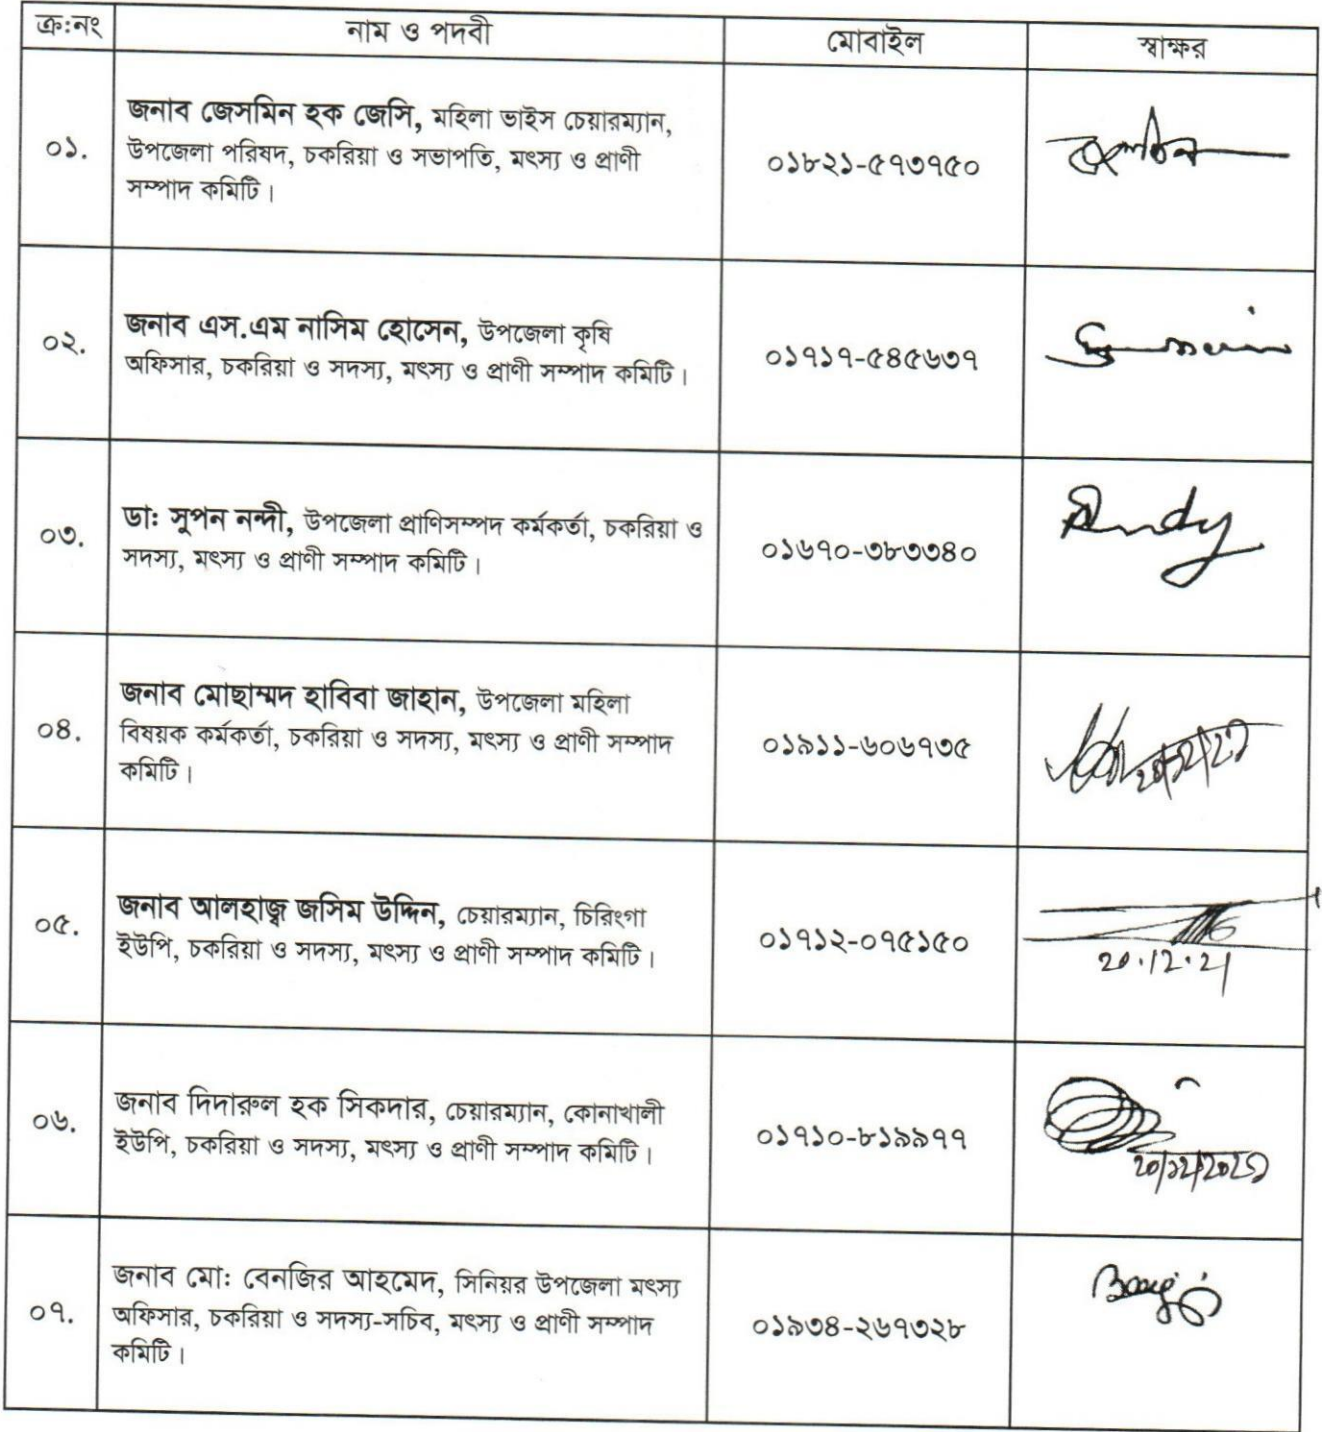 ক্র:নং নাম ও পদবী মোবাইল স্বাক্ষর
০১.
জনাব জেসমিন হক জেসি, মহিলা ভাইস চেয়ারম্যান,
উপজেলা পরিষদ, চকরিয়া ও সভাপতি, মৎস্য ও প্রাণী
সম্পাদ কমিটি।
০১৮২১-৫৭৩৭৫০
০২.
জনাব এস.এম নাসিম হোসেন, উপজেলা কৃষি
অফিসার, চকরিয়া ও সদস্য, মৎস্য ও প্রাণী সম্পাদ কমিটি।
০১৭১৭-৫৪৫৬৩৭
০৩.
ডা: সুপন নন্দী, উপজেলা প্রাণিসম্পদ কর্মকর্তা, চকরিয়া ও
সদস্য, মৎস্য ও প্রাণী সম্পাদ কমিটি।
০১৬৭০-৩৮৩৩৪০
০৪.
জনাব মোছাম্মদ হাবিবা জাহান, উপজেলা মহিলা
বিষয়ক কর্মকর্তা, চকরিয়া ও সদস্য, মৎস্য ও প্রাণী সম্পাদ
কমিটি।
০১৯১১-৬০৬৭৩৫
০৫.
জনাব আলহাজ্ব জসিম উদ্দিন, চেয়ারম্যান, চিরিংগা
ইউপি, চকরিয়া ও সদস্য, মৎস্য ও প্রাণী সম্পাদ কমিটি।
০১৭১২-০৭৫১৫০
20.12.21
০৬.
জনাব দিদারুল হক সিকদার, চেয়ারম্যান, কোনাখালী
ইউপি, চকরিয়া ও সদস্য, মৎস্য ও প্রাণী সম্পাদ কমিটি।
০১৭১০-৮১৯৯৭৭
২০/১২/২০২১
০৭.
জনাব মো: বেনজির আহমেদ, সিনিয়র উপজেলা মৎস্য
অফিসার, চকরিয়া ও সদস্য-সচিব, মৎস্য ও প্রাণী সম্পাদ
কমিটি।
০১৯৩৪-২৬৭৩২৮